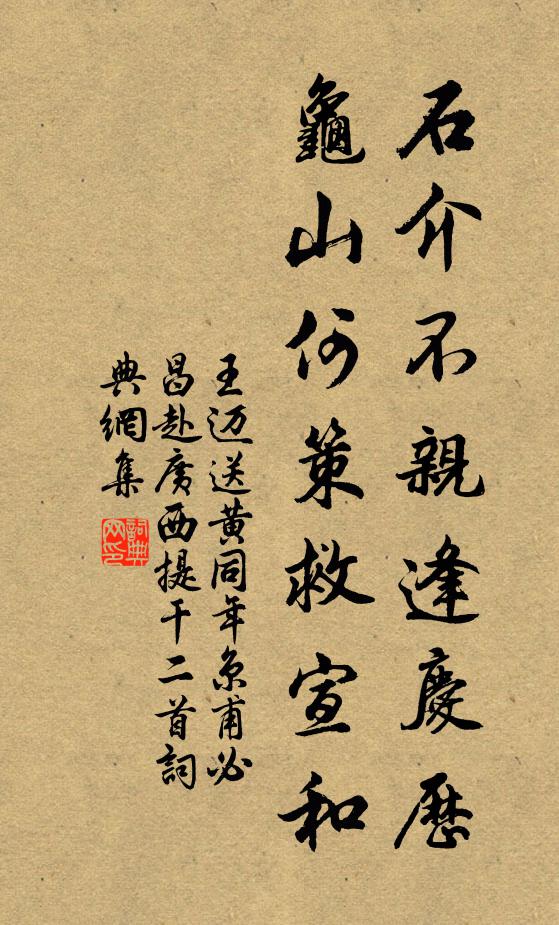 石介不親逢慶歷
龜山何策救宣和
王迈送黄同年京甫必
昌赴廣西提干二首詞
典網集
詞典网印